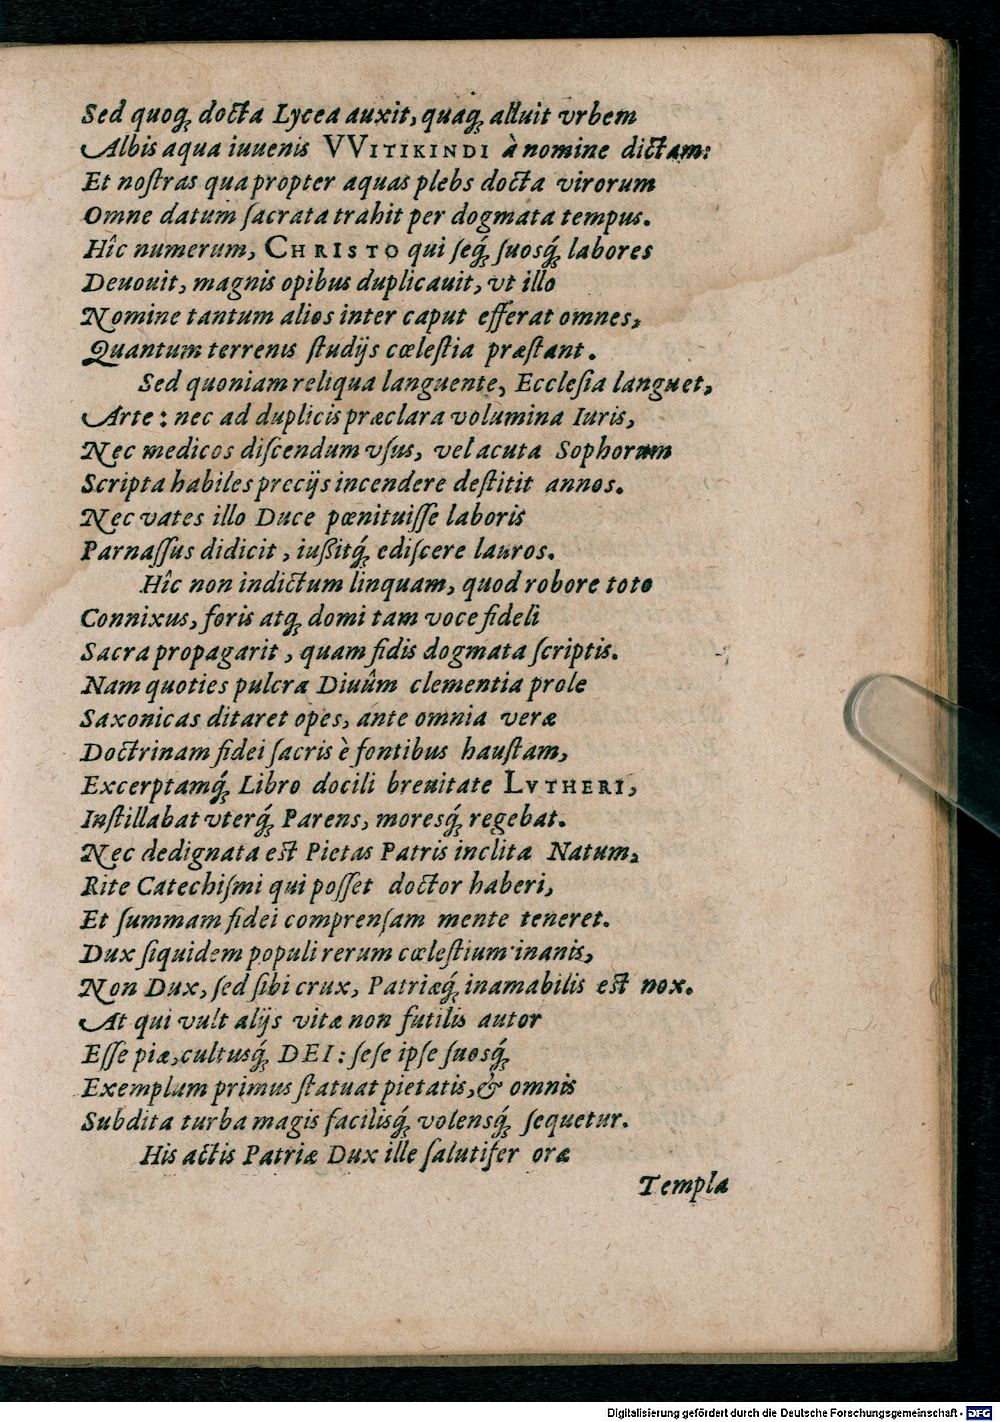 Sed quoq́ꝫ docta Lycea auxit, quaq́ꝫ alluit vrbem
Albis aqua iuuenis VVITIKINDI à nomine dictam:
Et noſtras quapropter aquas plebs docta virorum
Omne datum ſacrata trahit per dogmata tempus.
Hîc numerum, CHRISTO qui ſeq́ꝫ ſuosq́ꝫ labores
Deuouit, magnis opibus duplicauit, vt illo
Nomine tantum alios inter caput efferat omnes,
Quantum terrenis ſtudijs cœleſtia præſtant.
Sed quoniam reliqua languente, Eccleſia languet,
Arte: nec ad duplicis præclara volumina Iuris,
Nec medicos diſcendum vſus, vel acuta Sophorum
Scripta habiles precijs incendere deſtitit annos.
Nec vates illo Duce pœnituiſſe laboris
Parnaſſus didicit, iußitq́ꝫ ediſcere lauros.
Hîc non indictum linquam, quod robore toto
Connixus, foris atqꝫ domi tam voce fideli
Sacra propagarit, quam fidis dogmata ſcriptis.
Nam quoties pulcra Diuûm clementia prole
Saxonicas ditaret opes, ante omnia veræ
Doctrinam fidei ſacris è fontibus hauſtam,
Excerptamq́ꝫ Libro docili breuitate LVTHERI,
Inſtillabat vterq́ꝫ Parens, moresq́ꝫ regebat.
Nec dedignata est Pietas Patris inclita Natum,
Rite Catechiſmi qui poſſet doctor haberi,
Et ſummam fidei comprenſam mente teneret.
Dux ſiquidem populi rerum cœleſtium inanis,
Non Dux, ſed ſibi crux, Patriæq́ꝫ inamabilis est nox.
At qui vult alijs vitæ non futilis autor
Eſſe piæ, cultusq́ꝫ DEI: ſeſe ipſe ſuosq́ꝫ
Exemplum primus ſtatuat pietatis, & omnis
Subdita turba magis facilisq́ꝫ volensq́ꝫ ſequetur.
His actis Patriæ Dux ille ſalutifer oræ
Templa
Digitalisierung gefördert durch die Deutsche Forschungsgemeinschaft - DFG